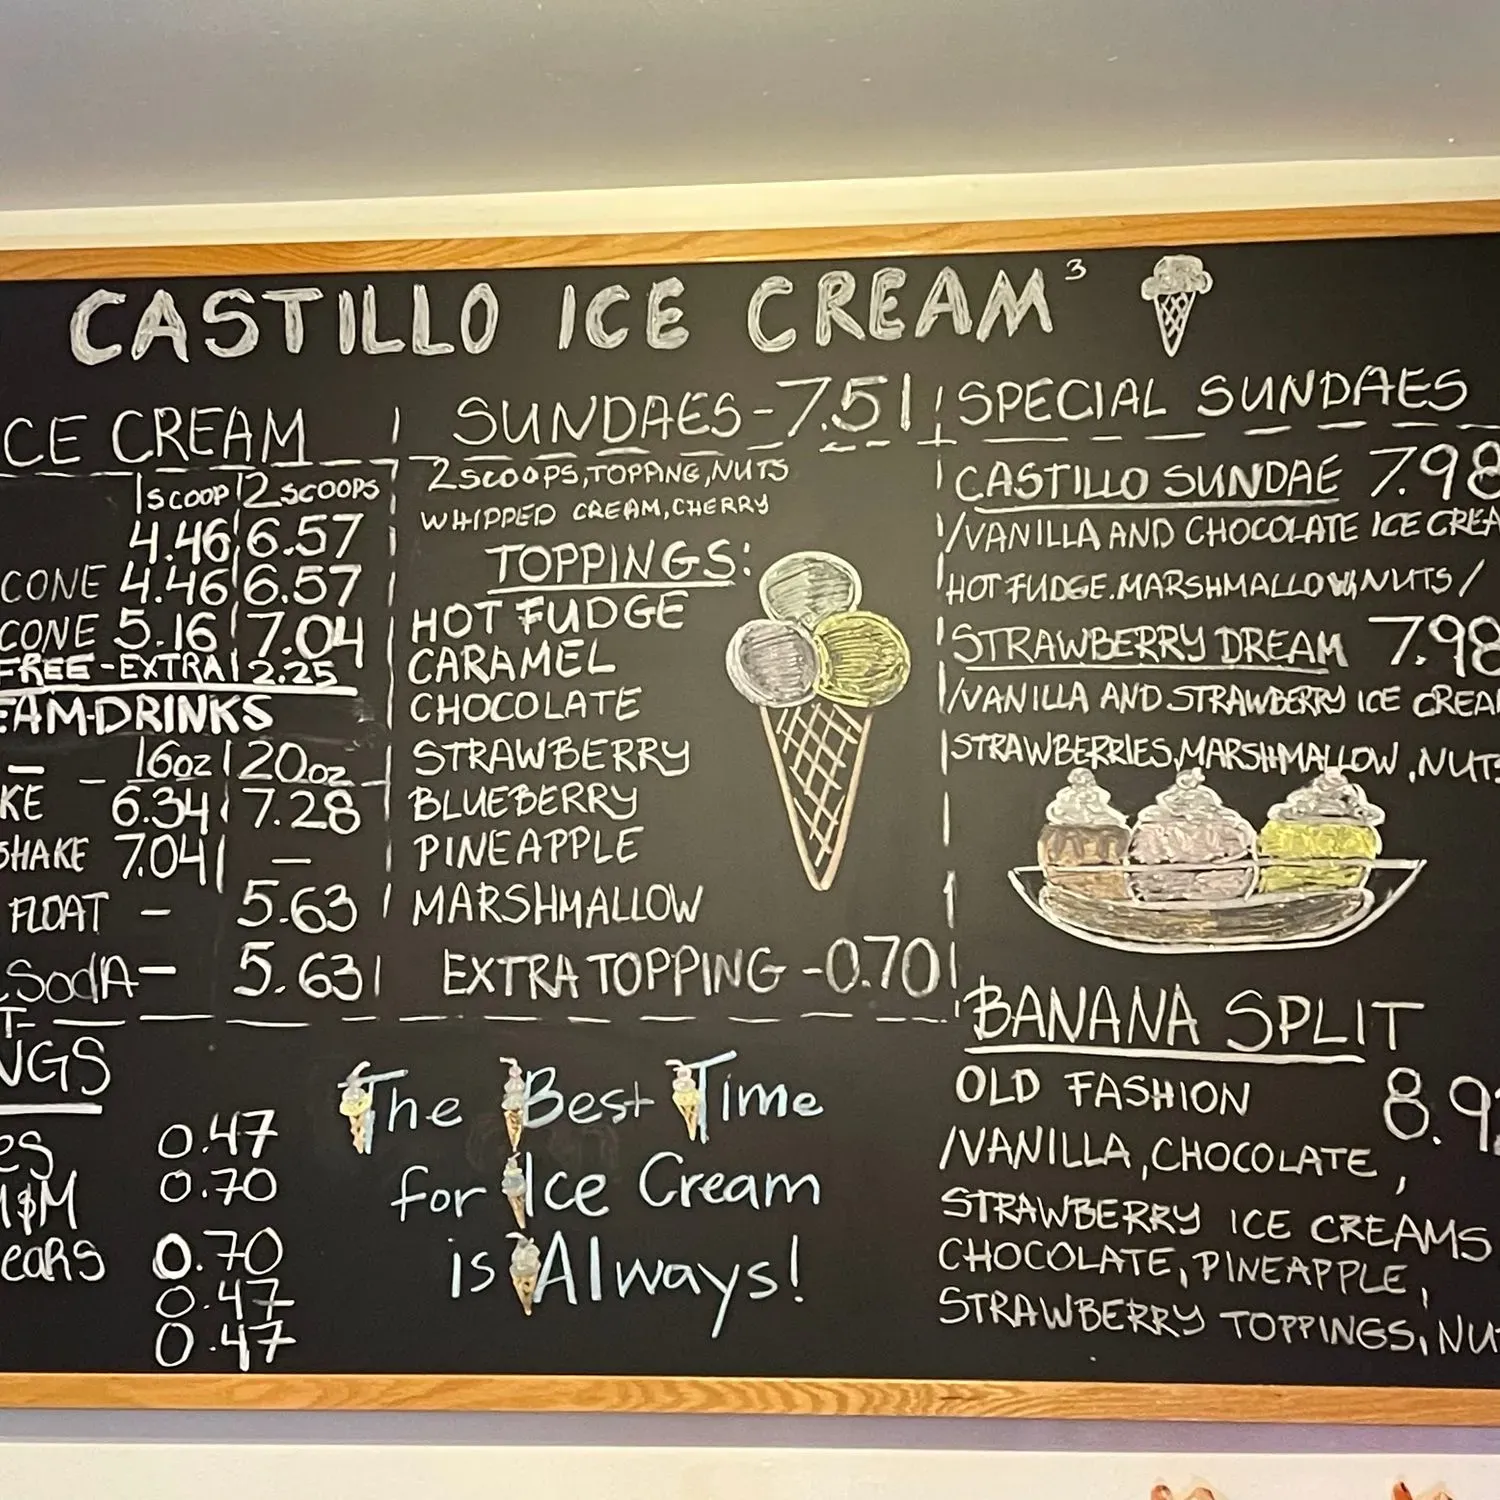 CASTILLO ICE CREAM³
CE CREAM
1 SCOOP 2 SCOOPS
4.46 6.57
CONE 4.46 6.57
CONE 5.16 7.04
FREE-EXTRA 2.25
EAM-DRINKS
- 16oz 20oz
KE 6.34 7.28
SHAKE 7.04 -
FLOAT - 5.63
.SODA- 5.63
T-
NGS
es 0.47
M$M 0.70
ears 0.70
0.47
0.47
SUNDAES-7.51
2 SCOOPS, TOPPING, NUTS
WHIPPED CREAM, CHERRY
TOPPINGS:
HOT FUDGE
CARAMEL
CHOCOLATE
STRAWBERRY
BLUEBERRY
PINEAPPLE
MARSHMALLOW
EXTRA TOPPING -0.70
The Best Time
for Ice Cream
is Always!
SPECIAL SUNDAES
CASTILLO SUNDAE 7.98
/VANILLA AND CHOCOLATE ICE CREA
HOT FUDGE.MARSHMALLOW,NUTS/
STRAWBERRY DREAM 7.98
/VANILLA AND STRAWBERRY ICE CREA
STRAWBERRIES,MARSHMALLOW,NUTS
BANANA SPLIT
OLD FASHION 8.9
/VANILLA, CHOCOLATE,
STRAWBERRY ICE CREAMS
CHOCOLATE, PINEAPPLE,
STRAWBERRY TOPPINGS, NU